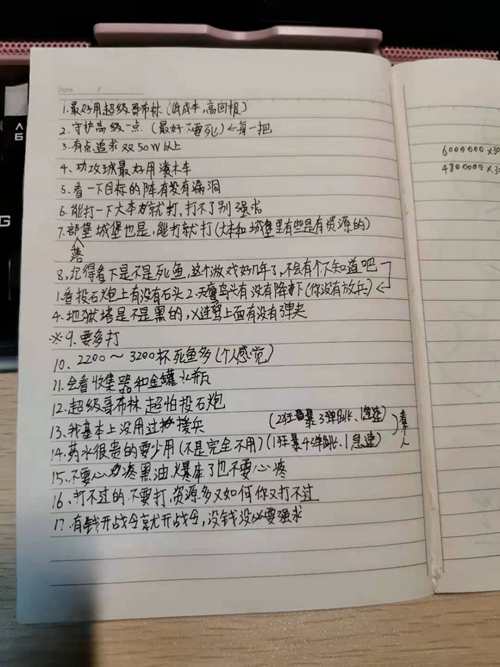 1.最好用超级哥布林(低成本,高回报)
2.守护高级一点(最好不要死)←每一把
3.有点追求 双50W以上
4.功攻城最好用滚木车
5.看一下目标的阵有没有漏洞
6.能打一下大本就打,打不了别强求
7.部落城堡也是,能打就打(大本和城堡里有些是有资源的)
8.记得看下是不是死鱼,这个游戏好几年了,不会有个不知道吧
1.看投石炮上有没有石头 2.天鹰 有没有 (你没有放兵)
4.地狱塔是不是黑的,X连弩上面有没有弹夹
※9.要多打
10.2200~3200杯死鱼多(个人感觉)
11.会看收集器和金罐
12.超级哥布林超怕投石炮
13.我基本上没用过援兵
(2狂暴3弹跳、1急速)
14.药水很贵的要少用(不是完全不用)(1狂暴4弹跳、1急速)
人
15.不要心疼黑油,爆库了也不要心疼
16.打不过的不要打,资源多又如何你又打不过
17.有钱开战令就开战令,没钱没必要强求
6000000×
480000×